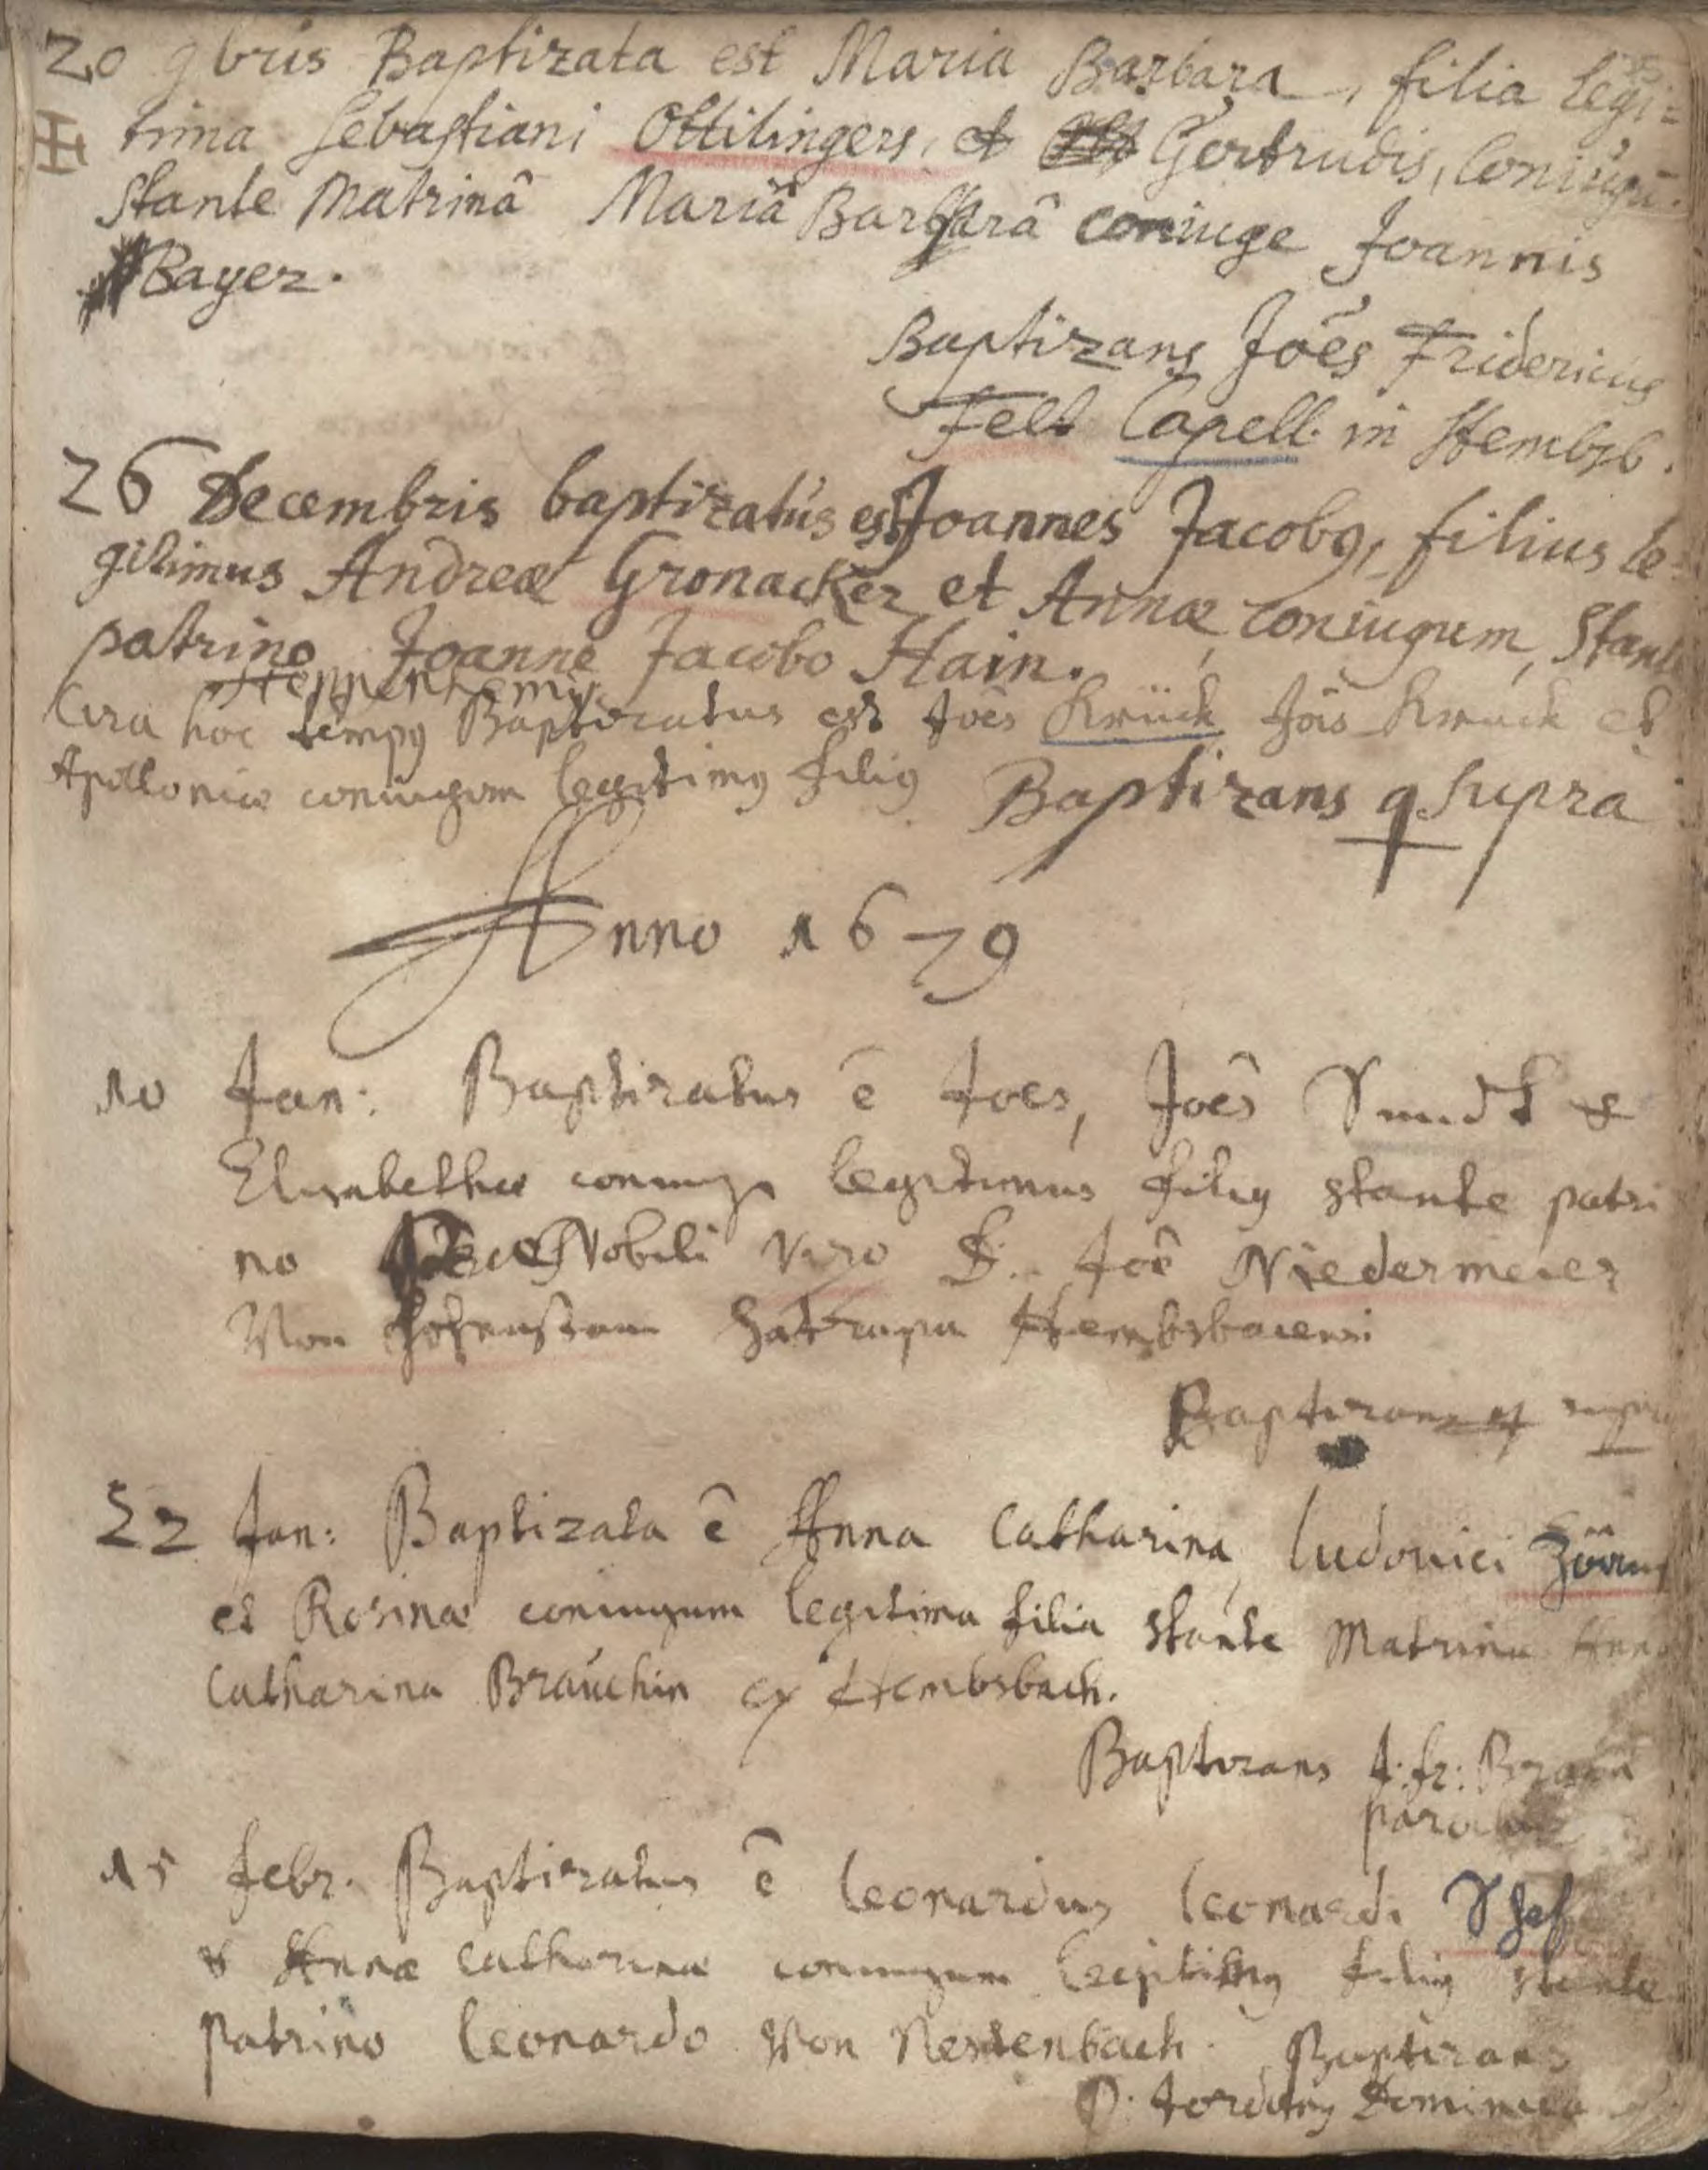 20 9bris Baptizata est Maria Barbara, filia legi=
tima Sebastiani Ottilingers, et Gertrudis, Coniugū.
stante Matrinâ Mariâ Barbarâ coniuge Joannis
Bayer.
Baptizans Joēs Fridericus
Felt Capell. in Hembsb.
26 Decembris baptizatus est Joannes Jacobg, filius le=
gitimus Andreæ Gronacker et Annæ, coniugum, stante
patrino Joanne Jacobo Hain.
Heppenhemij
Circa hoc tempg Baptizatus est Joēs Krück Jōis Krück et
Apolloniæ coniugum legitimg filig
Baptizans q supra
Anno 1679
10 Jan: Baptizatus ē Joes, Joēs &
Elizabethæ coniugū legitimus filig stante patri
no Nobili Viro D. Joē Niedermeier
Von Satrapa Hembsbacensi
Baptizans q supra
22 Jan: Baptizata ē Anna Catharina, Ludovici
et Rosinæ coniugum legitima filia stante Matrina Anna
Catharina Brauchin ex Hembsbach.
Baptizans J: fr:
paroch
15 febr. Baptizatus ē Leonardus Leonardi
& Annæ Catharinæ coniugum legitimg filig stante
patrino Leonardo Von Nestenbach. Baptizans
P. Jordang Dominica